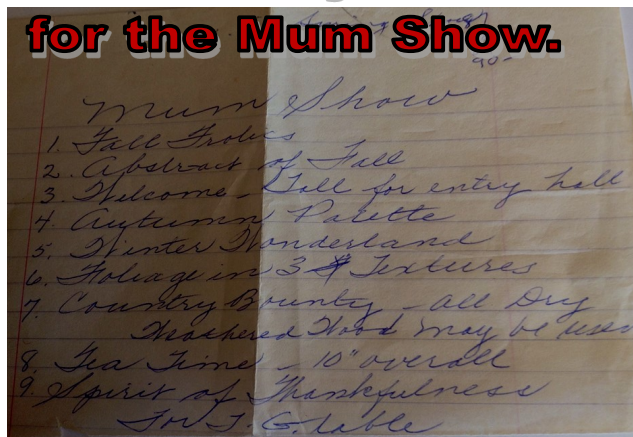 for the Mum Show.
90-
Mum Show
1. Fall Frolics
2. Abstract of Fall
3. Welcome - Tall for entry hall
4. Autumn Palette
5. Winter Wonderland
6. Foliage in 3 Textures
7. Country Bounty - all Dry
Weathered Wood may be used
8. Tea Time - 10" overall
9. Spirit of Thankfulness
For T. G. table